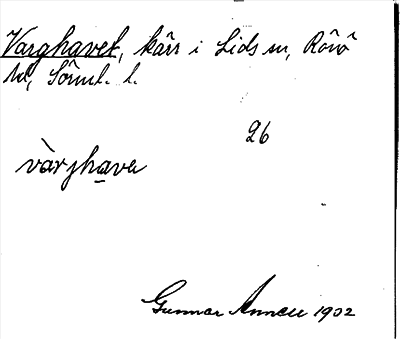 Varghavet, kärr i Lids sn, Rönö
hd, Sörml. l.
26
vàrjhava
Gunnar 1902